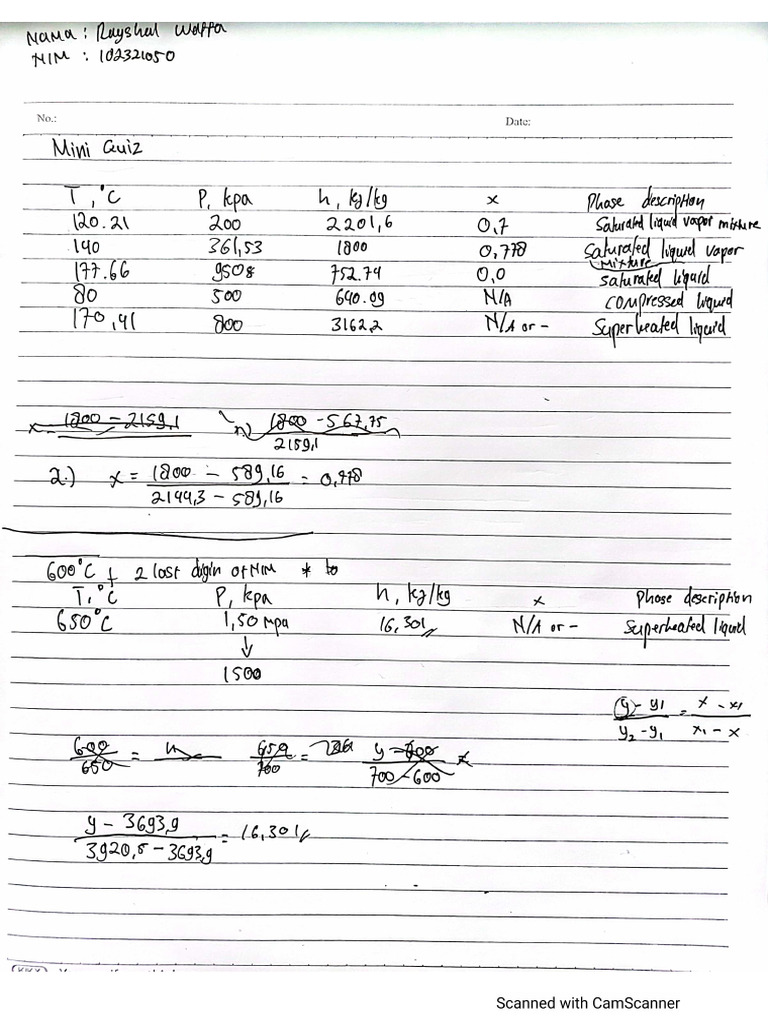 Nama : Rayshal Waffa
NIM : 102321050
No.:
Date:
Mini Quiz
T, °C P, kpa h, kj/kg x Phase description
120.21 200 2201,6 0,7 Saturated liquid vapor mixture
140 361,53 1800 0,778 Saturated liquid vapor
mixture
177.66 950 8 752.74 0,0 saturated liquid
80 500 640.09 N/A compressed liquid
170,41 800 3162.2 N/A or - Superheated liquid
1800 - 2159,1
1800 - 567,75
2159,1
2.) x = 1800 - 589,16 = 0,778
2144,3 - 589,16
600°C + 2 last digin of NIM * to
T, °C P, kpa h, kj/kg x Phase description
650°C 1,50 Mpa 16,301 N/A or - Superheated liquid
↓
1500
y - y1 = x - x1
y2 - y1 x1 - x
600 = h 650 = y - 700 x
650 700 700 - 600
y - 3693,9 = 16,301
3920,5 - 3693,9
Scanned with CamScanner